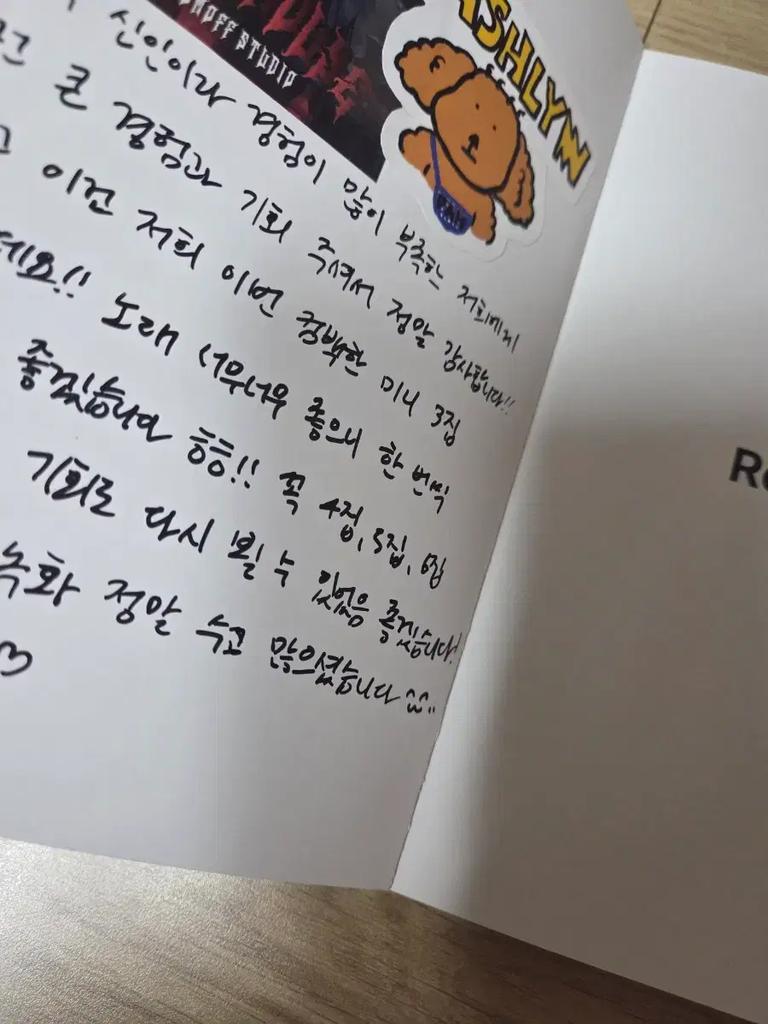 OFF STUDIO
ASHLYN
신인이라 경험이 많이 부족한 저희에게
큰 경험과 기회 주셔서 정말 감사합니다!!
이건 저희 이번 컴백한 미니 3집
데요!! 노래 너무너무 좋으니 한 번씩
좋겠습니다 흥흥!! 꼭 4집, 5집, 6집
기회로 다시 뵐 수 있었음 좋겠습니다!
녹화 정말 수고 많으셨습니다 ^^..
♡
R